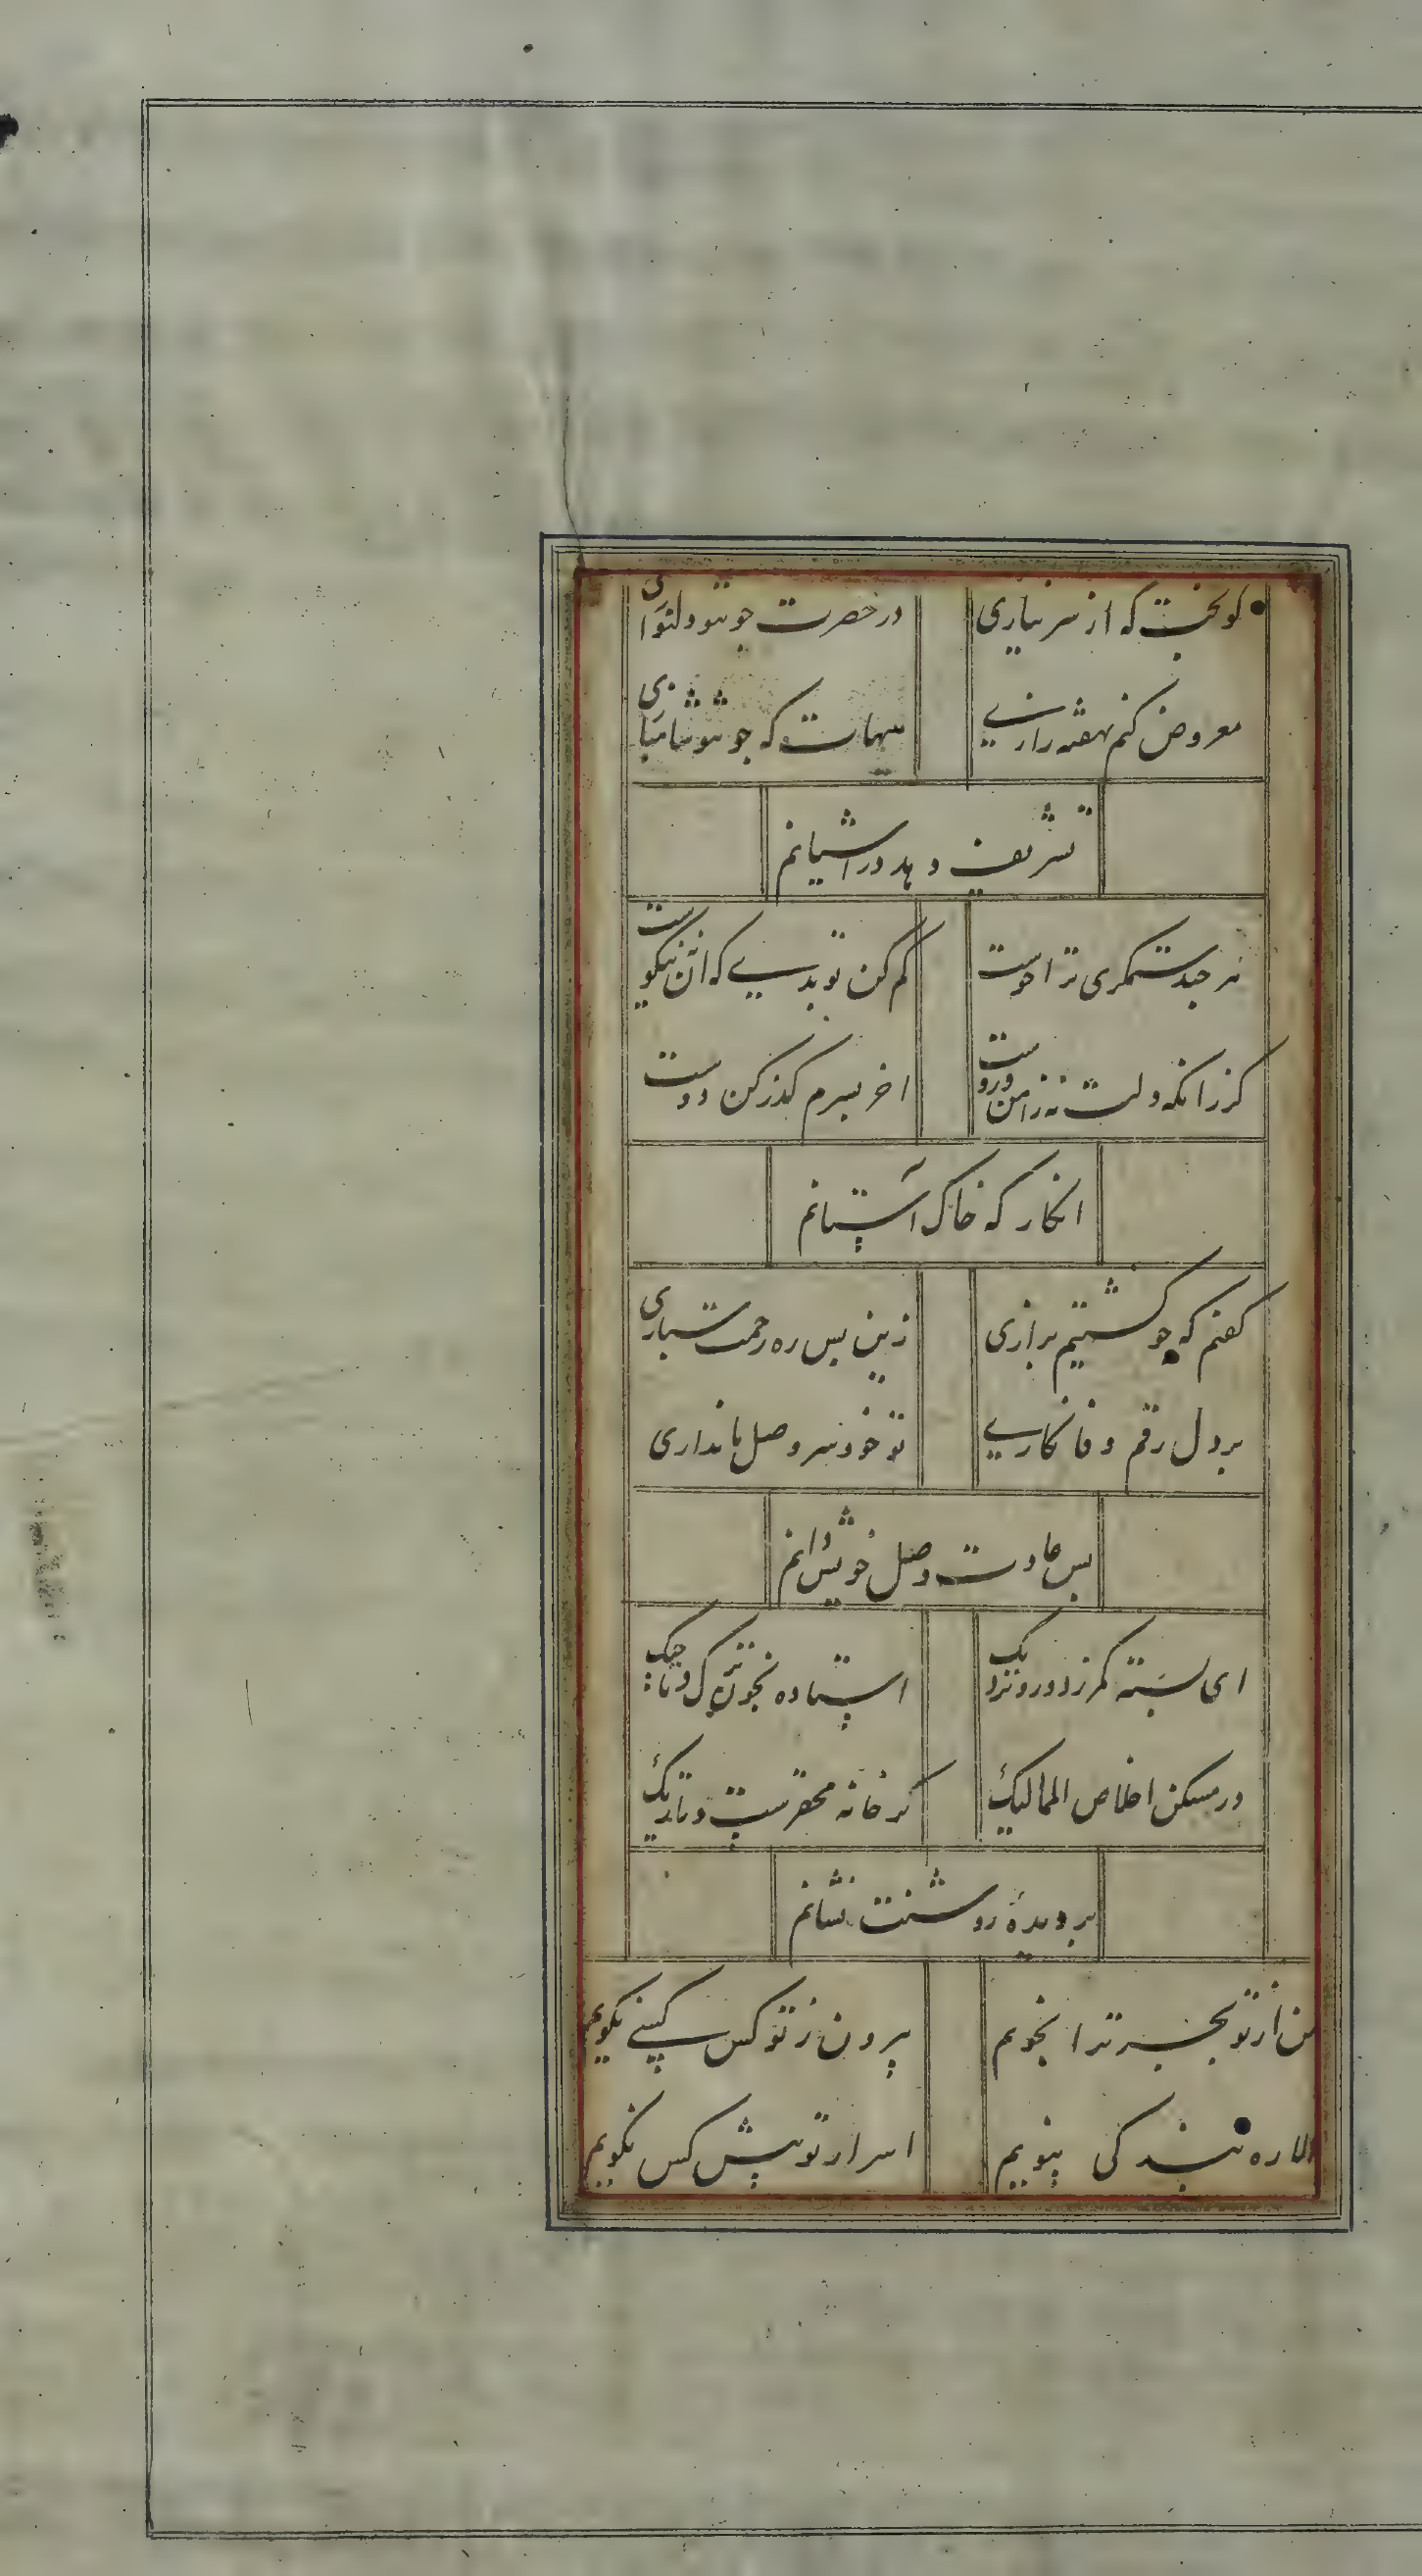 کو بخت که از سر نیازی
در حضرت چو تو دلنوازی
معروض کنم نهفته رازی
هیهات که چو تو شاهبازی
تشریف دهد در آشیانم
هر چند ستمگری ترا خوست
کم کن تو بدی که آن نه نیکوست
گر زانکه دلت نه زآهن و روست
آخر بسرم گذر کن دوست
انگار که خاک آستانم
گفتم که چو کشتیم بزاری
زین پس ره رحمت سپاری
بر دل رقم وفا نگاری
تو خود سر وصل ما نداری
من عادت وصل خویش دانم
ای بسته کمر ز دور و نزدیک
استاده بخون ترک و تاجیک
در مسکن اخلص الممالیک
گر خانه محقرست و تاریک
بر دیدهٔ روشنت نشانم
من از تو بجز ترا نجویم
بیرون ز تو کس کسی نگویم
الا ره بندگی نپویم
اسرار تو پیش کس نگویم